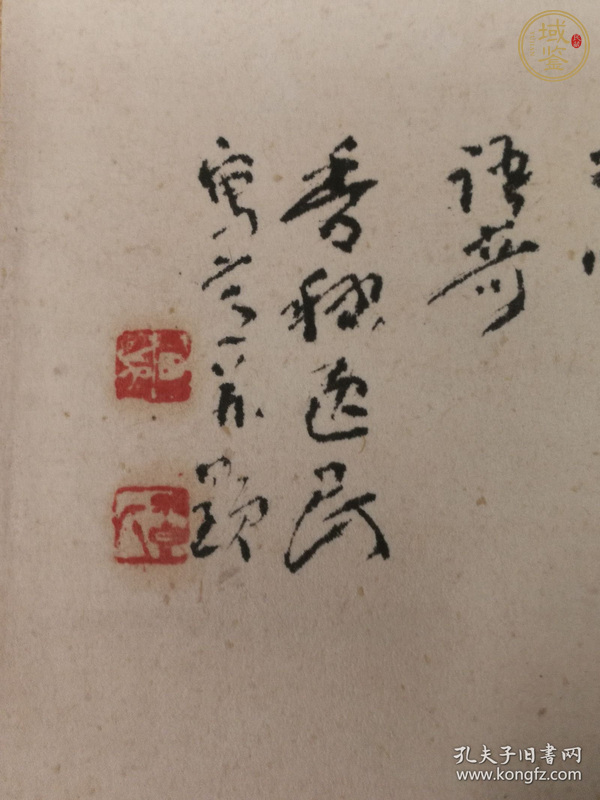 域鉴
語奇
香逸民
寫意并題
孔夫子旧书网
www.kongfz.com